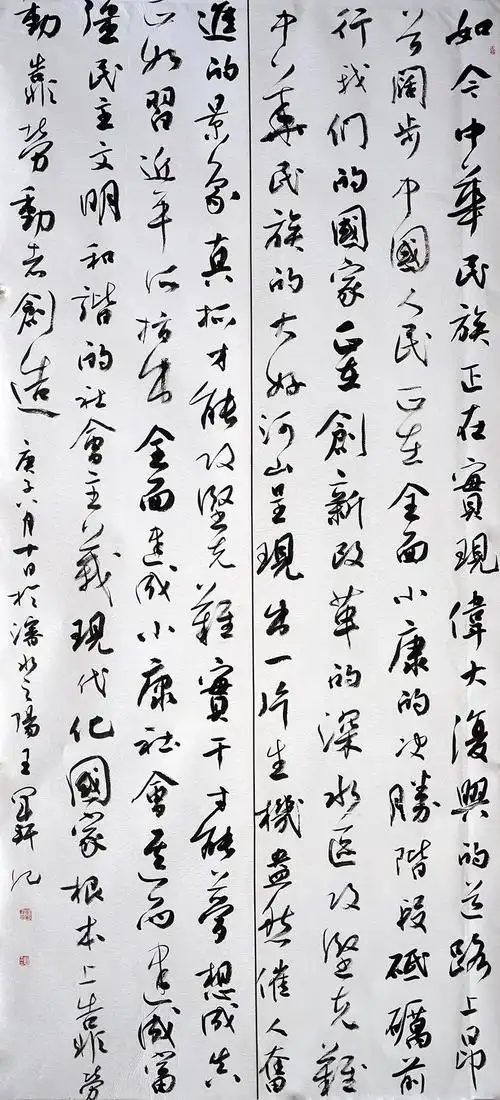 如今中華民族正在實現偉大復興的道路上昂
首闊步中國人民正在全面小康的决勝階段砥礪前
行我们的國家正在創新改革的深水區攻堅克難
中華民族的大好河山呈現出一片生機盎然催人奮
進的景象真抓才能攻堅克難實干才能夢想成真
正如習近平所指出全面建成小康社會進而建成富
强民主文明和諧的社會主義現代化國家根本上靠勞
動靠勞動者創造
庚子八月十日於瀋水之陽王軒記